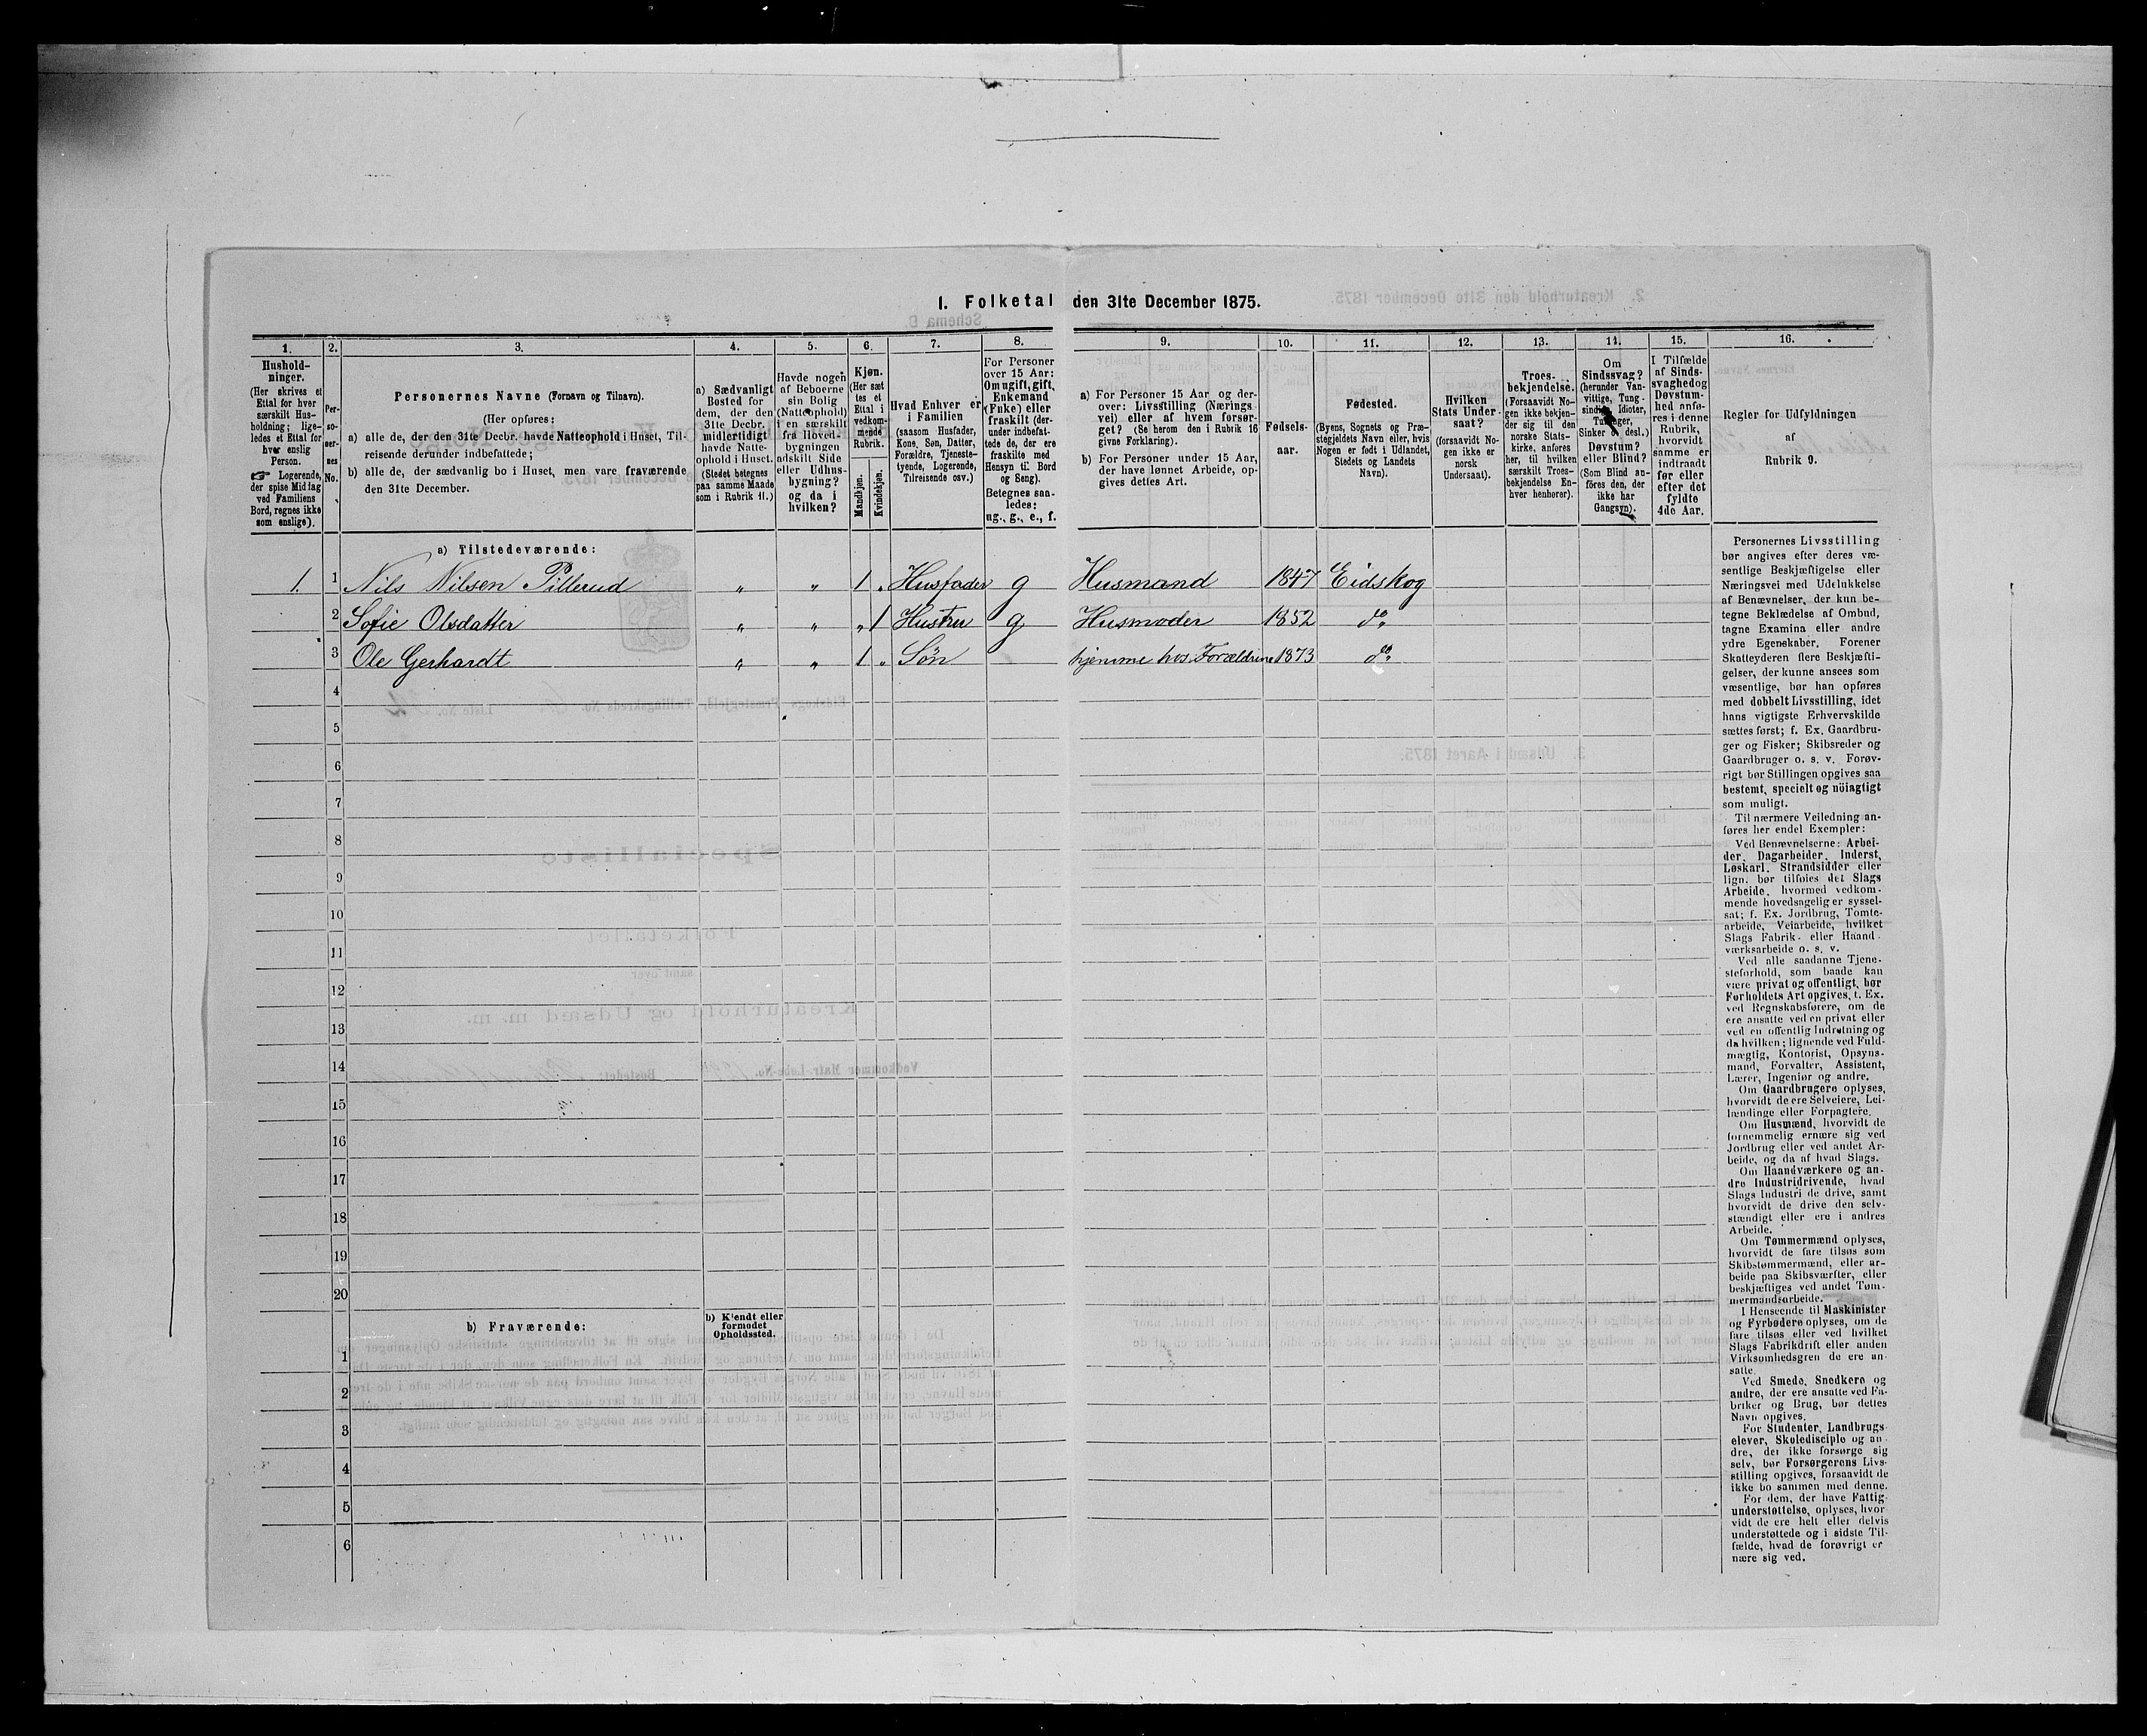 1. Folketal den 31te December 1875.
1.
2.
3.
4.
5.
6.
7.
8.
9.
10.
11.
12.
13.
14.
15.
16.
Hushold-
ninger.
(Her skrives et
Ettal for hver
særskilt Hus-
holdning; lige-
ledes et Ettal for
hver enslig
Person.
☞ Logerende,
der spise Middag
ved Familiens
Bord, regnes ikke
som enslige).
Per-
so-
ner-
nes
No.
Personernes Navne (Fornavn og Tilnavn).
(Her opføres:
a) alle de, der den 31te Decbr. havde Natteophold i Huset, Til-
reisende derunder indbefattede;
b) alle de, der sædvanlig bo i Huset, men vare fraværende
den 31te December.
a) Sædvanligt
Bosted for
dem, der den
31te Decbr.
midlertidigt
havde Natte-
ophold i Huset.
(Stedet betegnes
paa samme Maade
som i Rubrik 11.)
Havde nogen
af Beboerne
sin Bolig
(Natteophold)
i en særskilt
fra Hoved-
bygningen
adskilt Side
eller Udhus-
bygning?
og da i
hvilken?
Kjøn.
(Her sæt-
tes et
Ettal i
vedkom-
mende
Rubrik.
Mandkjøn.
Kvindekjøn.
Hvad Enhver er
i Familien
(saasom Husfader,
Kone, Søn, Datter,
Forældre, Tjeneste-
tyende, Logerende,
Tilreisende osv.)
For Personer
over 15 Aar:
Om ugift, gift,
Enkemand
(Enke) eller
fraskilt (der-
under indbefat-
tede de, der ere
fraskilte med
Hensyn til Bord
og Seng).
Betegnes saa-
ledes:
ug., g., e., f.
a) For Personer 15 Aar og der-
over: Livsstilling (Nærings-
vei) eller af hvem forsør-
get? (Se herom den i Rubrik 16
givne Forklaring).
b) For Personer under 15 Aar,
der have lønnet Arbeide, op-
gives dettes Art.
Fødsels-
aar.
Fødested.
(Byens, Sognets og Præ-
stegjeldets Navn eller, hvis
Nogen er født i Udlandet,
Stedets og Landets
Navn).
Hvilken
Stats Under-
saat?
(forsaavidt No-
gen ikke er
norsk
Undersaat).
Troes-
bekjendelse.
(Forsaavidt No-
gen ikke bekjen-
der sig til den
norske Stats-
kirke, anføres
her, til hvilken
særskilt Troes-
bekjendelse En-
hver henhører).
Om
Sindssvag?
(herunder Van-
vittige, Tung-
sindige, Idioter,
Tullinger,
Sinker o. desl.)
Døvstum?
eller Blind?
(Som Blind an-
föres den, der
ikke har
Gangsyn).
I Tilfælde
af Sinds-
svaghed og
Døvstum-
hed anfø-
res i denne
Rubrik,
hvorvidt
samme er
indtraadt
før eller
efter det
fyldte
4de Aar.
Regler for Udfyldningen
af
Rubrik 9.
a) Tilstedeværende:
1. 1 Nils Nilsen Pillerud " " 1 " Husfader g Husmand 1847 Eidskog
2 Sofie Olsdatter " " " 1 Hustru g Husmoder 1852 do
3 Ole Gerhardt " " 1 " Sön hjemme hos Forældrene 1873 do
4
5
6
7
8
9
10
11
12
13
14
15
16
17
18
19
20
b) Fraværende:
b) Kjendt eller
formodet
Opholdssted.
1
2
3
4
5
6
Personernes Livsstilling
bør angives efter deres væ-
sentlige Beskjæftigelse eller
Næringsvei med Udelukkelse
af Benævnelser, der kun be-
tegne Beklædelse af Ombud,
tagne Examina eller andre
ydre Egenskaber. Forener
Skatteyderen flere Beskjæfti-
gelser, der kunne ansees som
væsentlige, bør han opføres
med dobbelt Livsstilling, idet
hans vigtigste Erhvervskilde
sættes først; f. Ex. Gaardbru-
ger og Fisker; Skibsreder og
Gaardbruger o. s. v. Forøv-
rigt bør Stillingen opgives saa
bestemt, specielt og nöiagtigt
som muligt.
Til nærmere Veiledning an-
føres her endel Exempler:
Ved Benævnelserne: Arbei-
der, Dagarbeider, Inderst,
Løskarl, Strandsidder eller
lign. bør tilføies det Slags
Arbeide, hvormed vedkom-
mende hovedsagelig er syssel-
sat; f. Ex. Jordbrug, Tomte-
arbeide, Veiarbeide, hvilket
Slags Fabrik- eller Haand-
værksarbeide o. s. v.
Ved alle saadanne Tjene-
steforhold, som baade kan
være privat og offentligt, bør
Forholdets Art opgives, t. Ex.
ved Regnskabsførere, om de
ere ansatte ved en privat eller
ved en offentlig Indretning og
da hvilken; lignende ved Fuld-
mægtig, Kontorist, Opsyns-
mand, Forvalter, Assistent,
Lærer, Ingeniør og andre.
Om Gaardbrugere oplyses,
hvorvidt de ere Selveiere, Lei-
lændinge eller Forpagtere.
Om Husmænd, hvorvidt de
fornemmelig ernære sig ved
Jordbrug eller ved andet Ar-
beide, og da af hvad Slags.
Om Haandværkere og an-
dre Industridrivende, hvad
Slags Industri de drive, samt
hvorvidt de drive den selv-
stændigt eller ere i andres
Arbeide.
Om Tømmermænd oplyses,
hvorvidt de fare tilsøs som
Skibstømmermænd, eller ar-
beide paa Skibsværfter, eller
beskjæftiges ved andet Tøm-
mermandsarbeide.
I Henseende til Maskinister
og Fyrbødere oplyses, om de
fare tilsøs eller ved hvilket
Slags Fabrikdrift eller anden
Virksomhedsgren de ere an-
satte.
Ved Smede, Snedkere og
andre, der ere ansatte ved Fa-
briker og Brug, bør dettes
Navn opgives.
For Studenter, Landbrugs-
elever, Skoledisciple og an-
dre, der ikke forsørge sig
selv, bør Forsørgerens Livs-
stilling opgives, forsaavidt de
ikke bo sammen med denne.
For dem, der have Fattig-
understøttelse, oplyses, hvor-
vidt de ere helt eller delvis
understøttede og i sidste Til-
fælde, hvad de forøvrigt er-
nære sig ved.